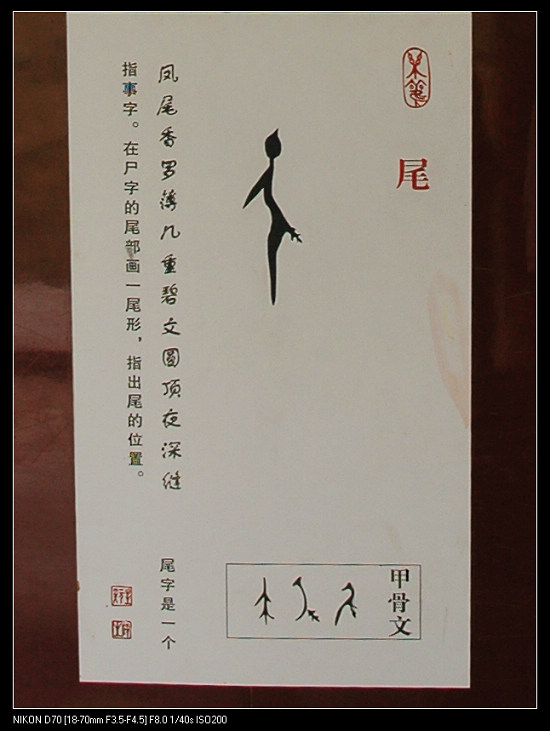 尾
甲骨文
凤尾香罗薄几重碧文圆顶夜深缝
尾字是一个
指事字。在尸字的尾部画一尾形，指出尾的位置。
NIKON D70 [18-70mm F3.5-F4.5] F8.0 1/40s ISO200